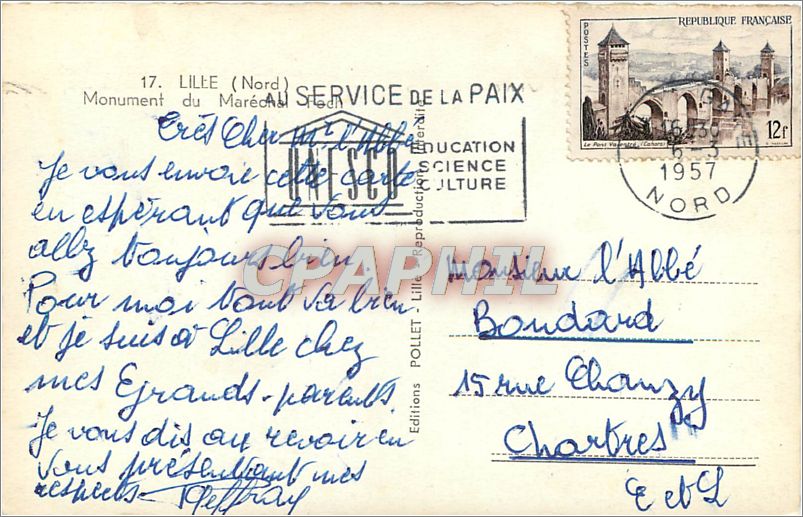 17. LILLE (Nord)
Monument du Maréchal Foch
AU SERVICE DE LA PAIX
UNESCO
EDUCATION
SCIENCE
CULTURE
REPUBLIQUE FRANÇAISE
POSTES
12f
Le Pont Valentré (Cahors)
16-30
6-3
1957
NORD
Très Cher Mr l'Abbé
Je vous envoie cette carte
en espérant que vous
allez toujours bien.
Pour moi tout va bien
et je suis à Lille chez
mes Egrands-parents.
Je vous dis au revoir en
vous présentant mes
respects
Editions POLLET - Lille - Reproduction Interdite
CPAPHIL
Monsieur l'Abbé
Boudard
15 rue Chanzy
Chartres
E et L